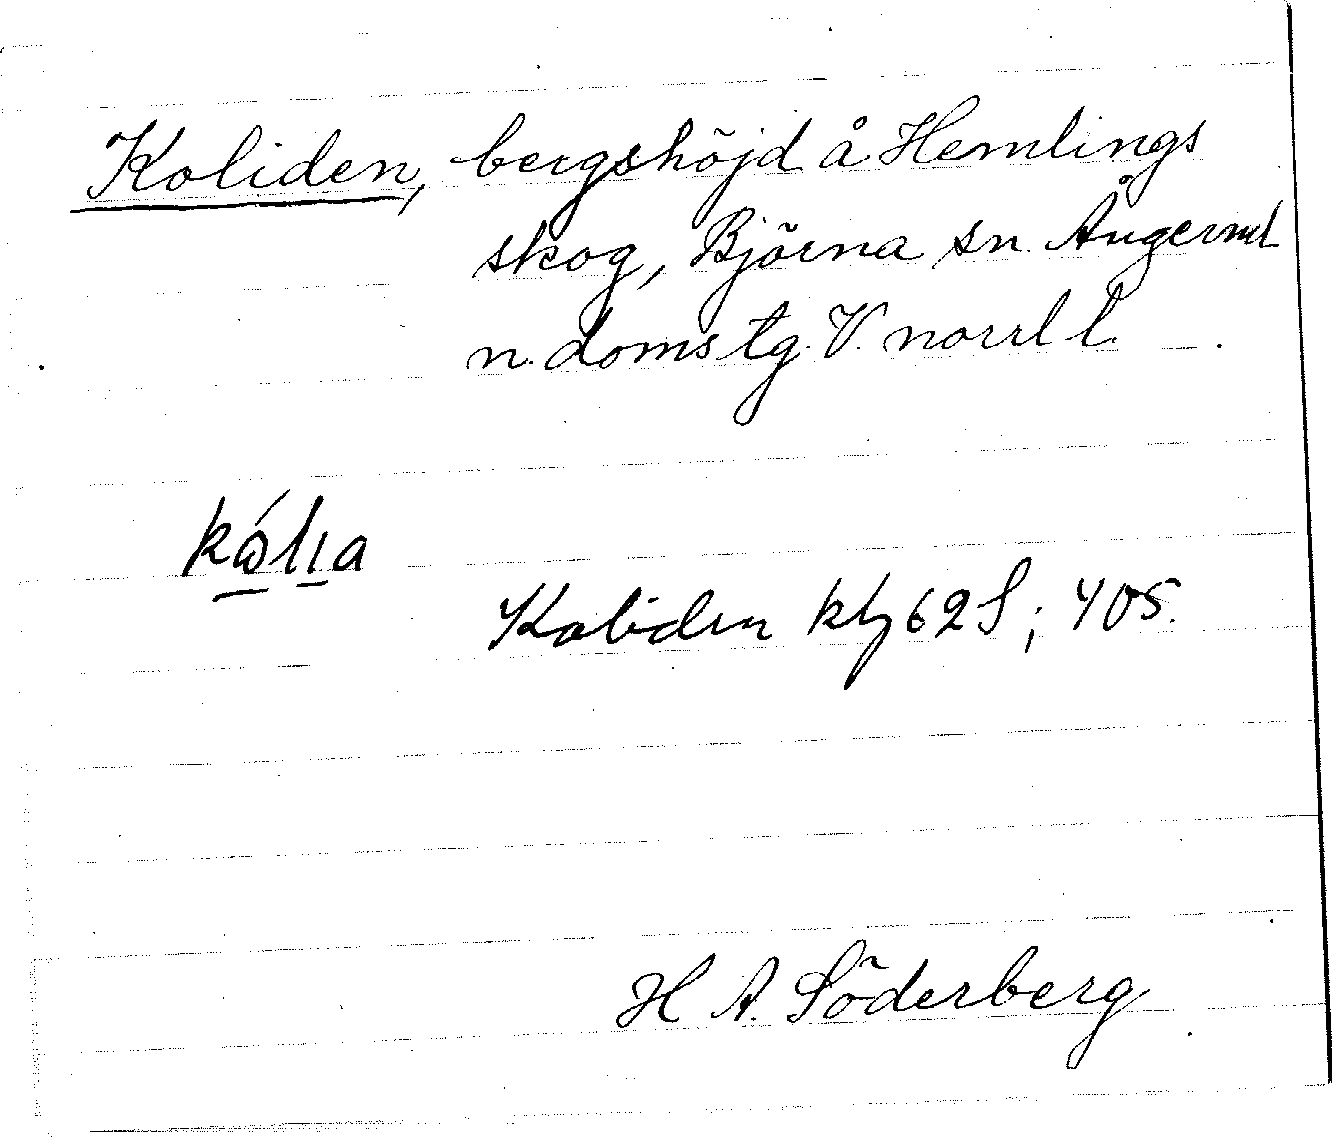 Koliden, bergshöjd å Hemlings
skog, Björna sn. Ångerml
n. doms tg. V. norrl l.
Koliden kbl 62 S; 405.
H A. Söderberg